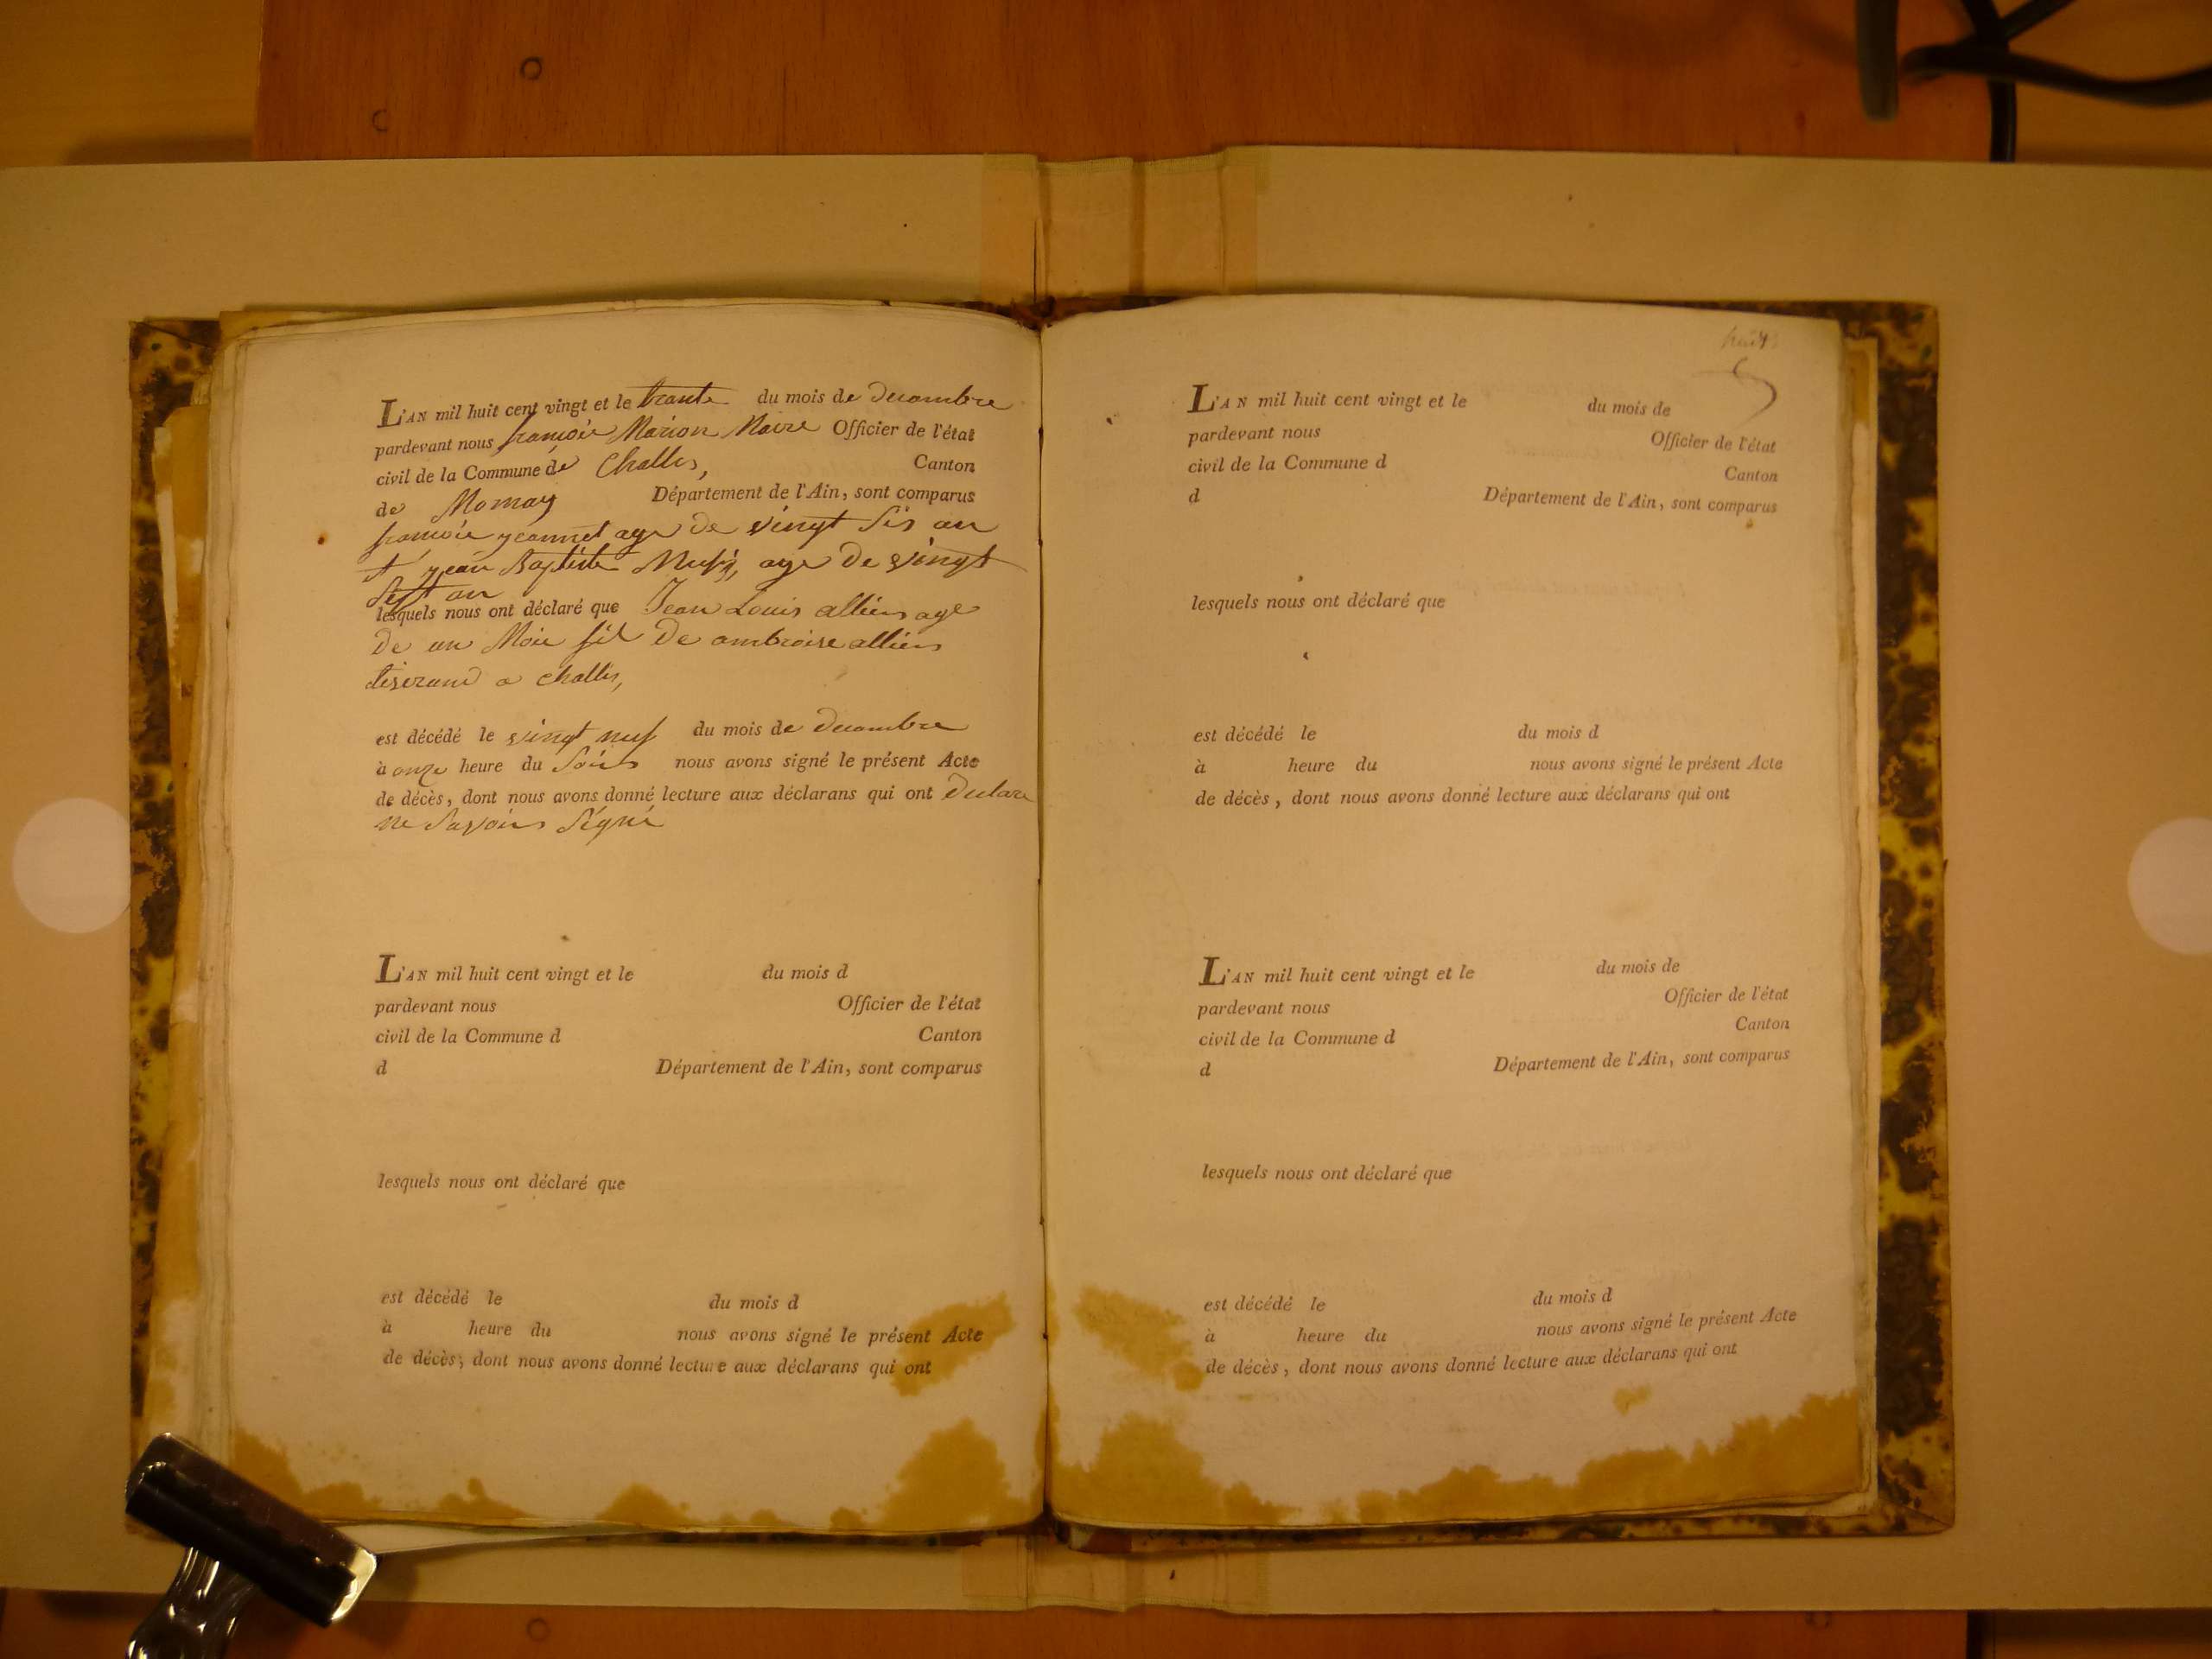 L'AN mil huit cent vingt et le trante du mois de decambre
pardevant nous francois Marion Maire Officier de l'état
civil de la Commune de Challes, Canton
de Département de l'Ain, sont comparus
francois yeannet age de vingt sis an
et yean Baptiste age de vingt
sept an
lesquels nous ont déclaré que Jean Louis alliers age
de un Mois fil de ambroise alliers
tiserand a challes,
est décédé le vingt neuf du mois de decambre
à onze heure du soirs nous avons signé le présent Acte
de décès, dont nous avons donné lecture aux déclarans qui ont declare
ne savoirs signé
L'AN mil huit cent vingt et le du mois d
pardevant nous Officier de l'état
civil de la Commune d Canton
d Département de l'Ain, sont comparus
lesquels nous ont déclaré que
est décédé le du mois d
à heure du nous avons signé le présent Acte
de décès, dont nous avons donné lecture aux déclarans qui ont
huit
L'AN mil huit cent vingt et le du mois de
pardevant nous Officier de l'état
civil de la Commune d Canton
d Département de l'Ain, sont comparus
lesquels nous ont déclaré que
est décédé le du mois d
à heure du nous avons signé le présent Acte
de décès, dont nous avons donné lecture aux déclarans qui ont
L'AN mil huit cent vingt et le du mois de
pardevant nous Officier de l'état
civil de la Commune d Canton
d Département de l'Ain, sont comparus
lesquels nous ont déclaré que
est décédé le du mois d
à heure du nous avons signé le présent Acte
de décès, dont nous avons donné lecture aux déclarans qui ont